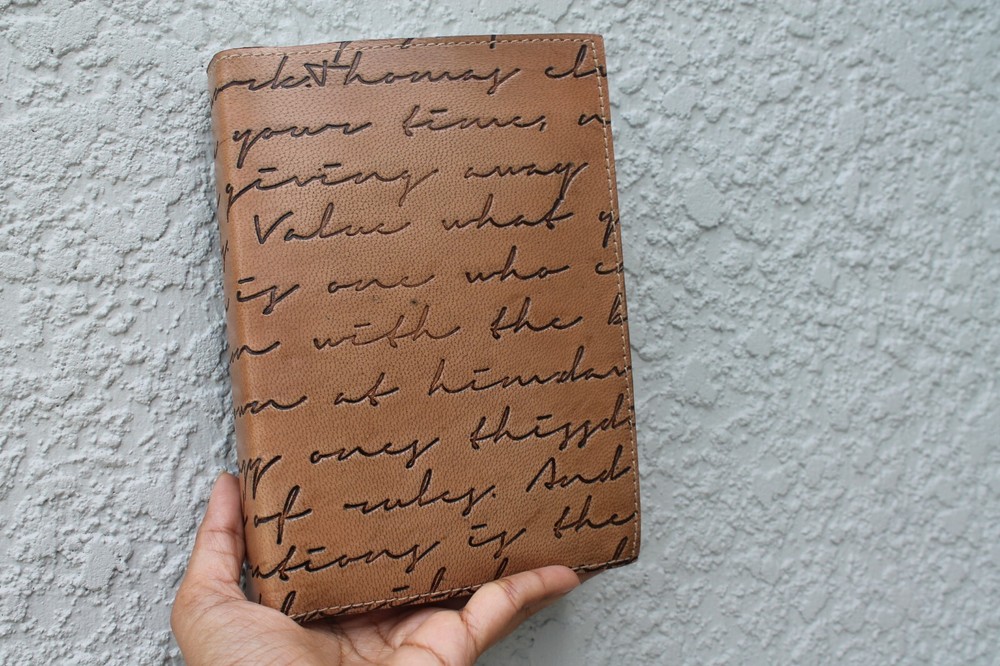 rck.Thomas ch
your time,
giving away
Value what y
is one who c
with the b
at himdar
ones thissd
of rules. And
ations is the